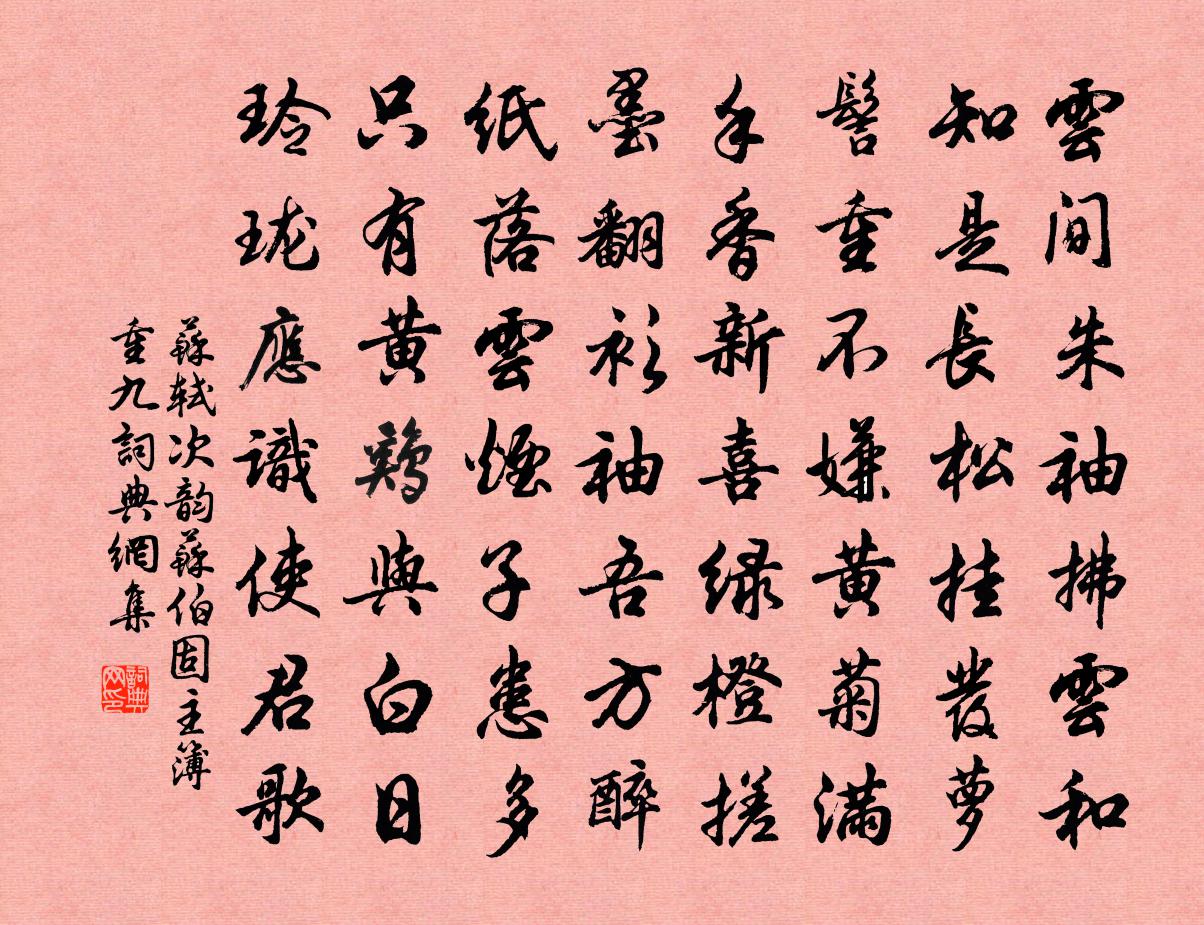 雲间朱袖拂雲和
知是長松挂萝
髻重不嫌黄菊滿
手香新喜绿橙搓
墨翻衫袖吾方醉
紙落雲煙子患多
只有黄鷄與白日
玲珑應識使君歌
蘇轼次韵蘇伯固主簿
重九詞典網集
詞典网印